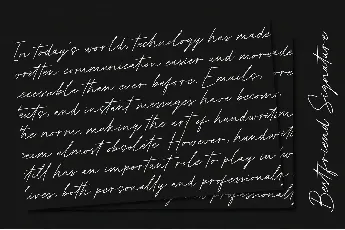 In today's world, technology has made
written communication easier and more
accessible than ever before. Emails,
texts, and instant messages have become
the norm, making the art of handwriting
seem almost obsolete. However, handwriti
still has an important role to play in
lives, both personally and professionally
Bestfriend Signature